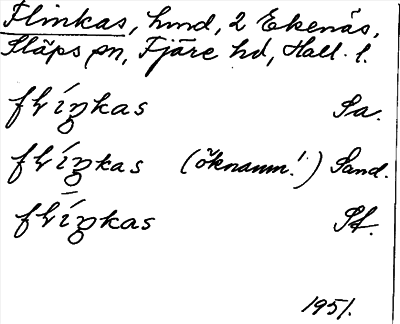 Flinkas, hmd, 2 Ekenäs,
Släps sn, Fjäre hd, Hall. l.
flíŋkas Sa.
flíŋkas (öknamn!) Sand.
flíŋkas St.
1951.